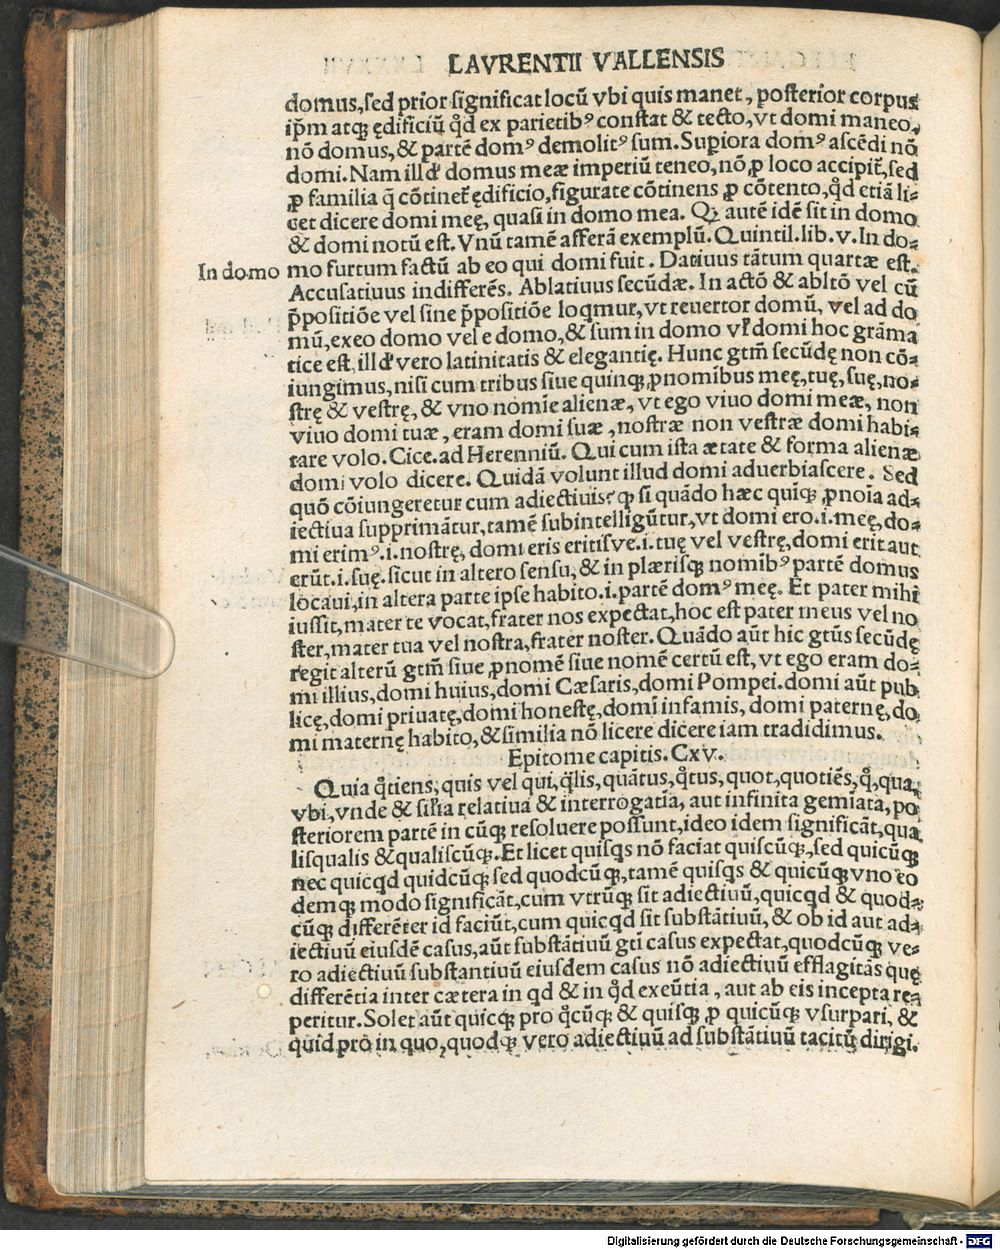 LAVRENTII VALLENSIS
domus,sed prior significat locũ vbi quis manet, posterior corpus
ip̃m atqꝫ ędificiũ qđ ex parietibꝰ constat & tecto,vt domi maneo,
nõ domus,& partẽ domꝰ demolitꝰ sum.Supiora domꝰ ascẽdi nõ
domi.Nam illđ domus meæ imperiũ teneo,nõ ꝓ loco accipit̃,sed
ꝓ familia q̃ cõtinet̃ ędificio,figurate cõtinens ꝓ cõtento,qđ etiã li-
cet dicere domi meę, quasi in domo mea. Qꝫ autẽ idẽ sit in domo
& domi notũ est.Vnũ tamẽ afferã exemplũ.Quintil.lib.v.In do-
In domo
mo furtum factũ ab eo qui domi fuit. Datiuus tãtum quartæ est.
Accusatiuus indifferẽs. Ablatiuus secũdæ. In actõ & abltõ vel cũ
p̃positiõe vel sine p̃positiõe loqmur,vt reuertor domũ, vel ad do
mũ,exeo domo vel e domo,& sum in domo vł domi hoc grãma
tice est,illđ vero latinitatis & elegantię. Hunc gtm̃ secũdę non cõ-
iungimus,nisi cum tribus siue quinqꝫ ꝓnomibus meę,tuę,suę,no-
strę & vestrę, & vno nomĩe alienæ, vt ego viuo domi meæ, non
viuo domi tuæ, eram domi suæ, nostræ non vestræ domi habi-
tare volo.Cice.ad Herenniũ. Qui cum ista ætate & forma alienæ
domi volo dicere. Quidã volunt illud domi aduerbiascere. Sed
quõ cõiungeretur cum adiectiuis? qꝫ si quãdo hæc quĩqꝫ ꝓnoĩa ad-
iectiua supprimãtur,tamẽ subintelligũtur,vt domi ero.i.meę,do-
mi erimꝰ.i.nostrę,domi eris eritisve.i.tuę vel vestrę,domi erit aut
erũt.i.suę.sicut in altero sensu,& in plærisqꝫ nomibꝰ partẽ domus
locaui,in altera parte ipse habito.i.partẽ domꝰ meę. Et pater mihi
iussit,mater te vocat,frater nos expectat,hoc est pater meus vel no
ster,mater tua vel nostra,frater noster. Quãdo aũt hic gtũs secũdę
regit alterũ gtm̃ siue ꝓnomẽ siue nomẽ certũ est,vt ego eram do-
mi illius,domi huius,domi Cæsaris,domi Pompei.domi aũt pub
licę,domi priuatę,domi honestę,domi infamis, domi paternę,do
mi maternę habito,& similia nõ licere dicere iam tradidimus.
Epitome capitis. Cxv.
Quia q̃tiens, quis vel qui,q̃lis,quãtus,q̃tus,quot,quotiẽs,q̃,qua,
vbi,vnde & sił̃ia relatiua & interrogatĩa, aut infinita gemĩata, po
steriorem partẽ in cũqꝫ resoluere possunt,ideo idem significãt,qua
lisqualis & qualiscũqꝫ.Et licet quisqs nõ faciat quiscũqꝫ,sed quicũqꝫ
nec quicqd quidcũqꝫ sed quodcũqꝫ,tamẽ quisqs & quicũqꝫ vno eo
demqꝫ modo significãt,cum vtrũqꝫ sit adiectiuũ,quicqd & quod-
cũqꝫ differẽter id faciũt,cum quicqd sit substãtiuũ, & ob id aut ad-
iectiuũ eiusdẽ casus,aũt substãtiuũ gtĩ casus expectat,quodcũqꝫ ve-
ro adiectiuũ substantiuũ eiusdem casus nõ adiectiuũ efflagitãs quę
differẽtia inter cætera in qd & in qđ exeũtia, aut ab eis incepta re-
peritur.Solet aũt quicqꝫ pro q̃cũqꝫ & quisqꝫ ꝓ quicũqꝫ vsurpari, &
quid pro in quo,quodqꝫ vero adiectiuũ ad substãtiuũ tacitũ dirigi.
Digitalisierung gefördert durch die Deutsche Forschungsgemeinschaft - DFG